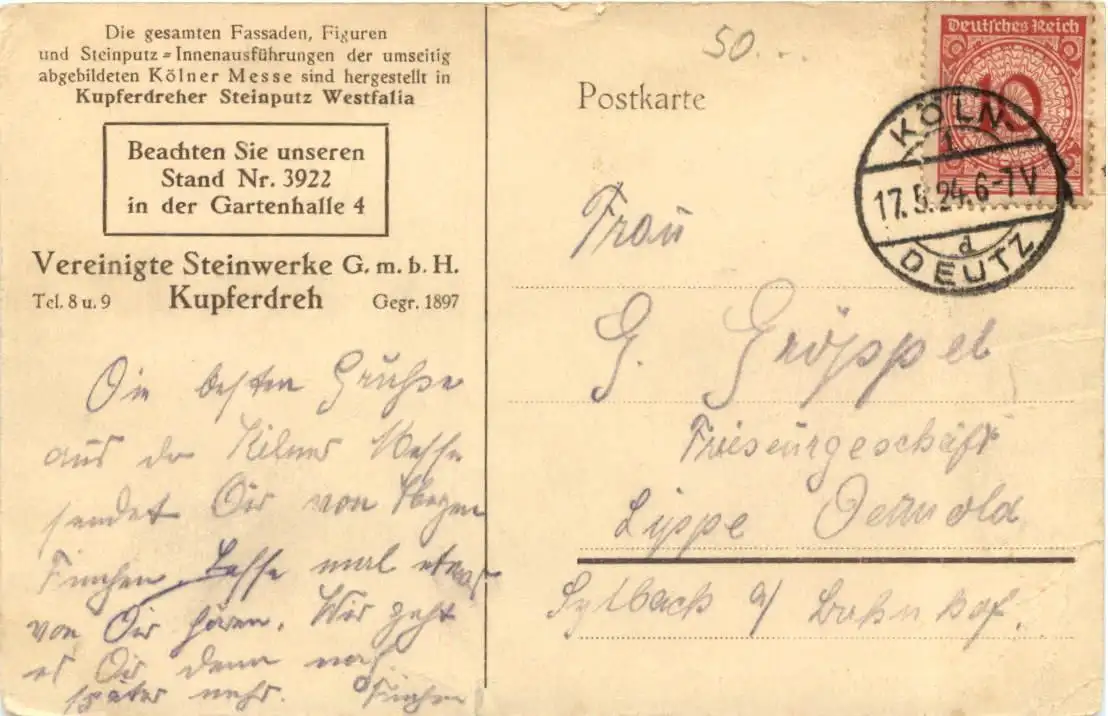 Die gesamten Fassaden, Figuren
und Steinputz=Innenausführungen der umseitig
abgebildeten Kölner Messe sind hergestellt in
Kupferdreher Steinputz Westfalia
Beachten Sie unseren
Stand Nr. 3922
in der Gartenhalle 4
Vereinigte Steinwerke G. m. b. H.
Tel. 8 u. 9 Kupferdreh Gegr. 1897
Die besten Grüße
aus der Kölner Messe
sendet Dir von Herzen
Finchen. Lasse mal etwas
von Dir hören. Wie geht
es Dir denn noch
später mehr. Finchen
50
Postkarte
Deutsches Reich
10
KÖLN-
1
17.5.24.6-7V
d
DEUTZ
Frau
G. Gröppel
Friseurgeschäft
Lippe Detmold
Sylbach a/ Bahnhof.